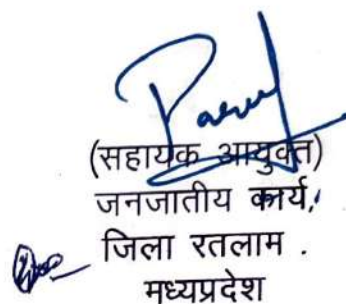 (सहायक आयुक्त)
जनजातीय कार्य,
जिला रतलाम .
मध्यप्रदेश